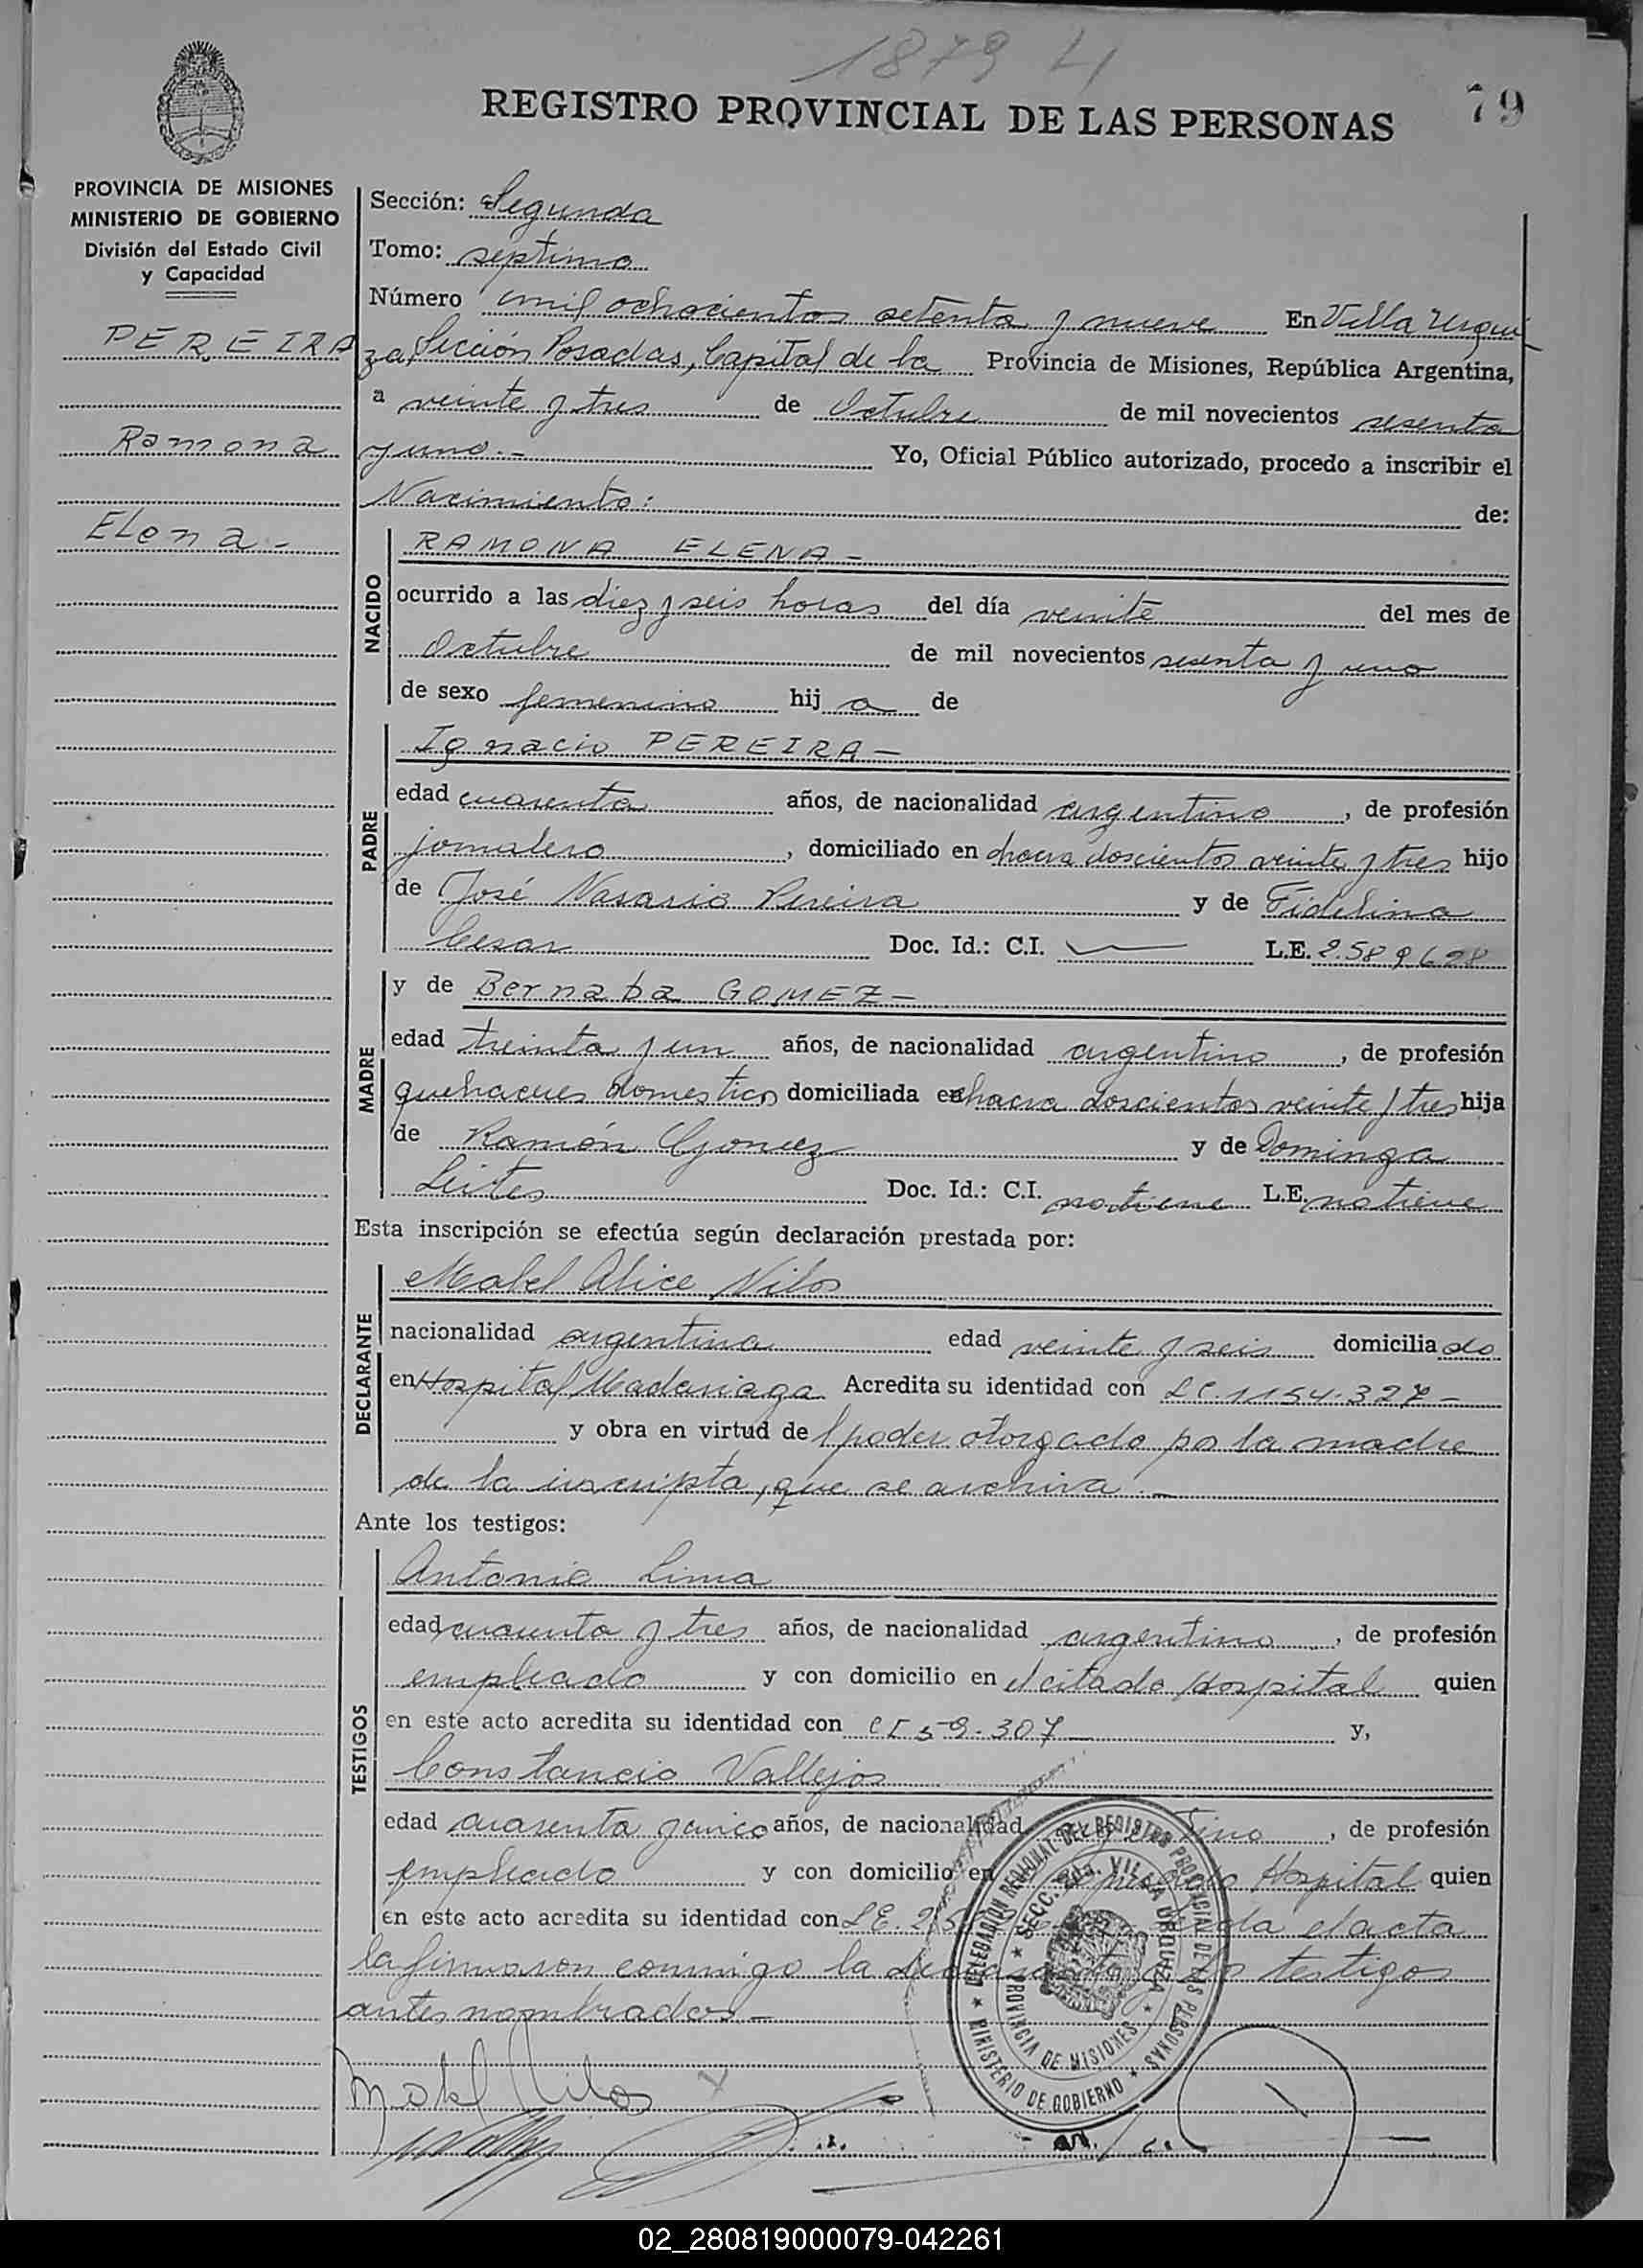 1879 H
REGISTRO PROVINCIAL DE LAS PERSONAS
79
PROVINCIA DE MISIONES
MINISTERIO DE GOBIERNO
División del Estado Civil
y Capacidad
PEREIRA
Ramona
Elena.-
Sección: Segunda
Tomo: septimo
Número mil ochocientos setenta y nueve En Villa Urqui
za, Sección Posadas, Capital de la Provincia de Misiones, República Argentina,
a veinte y tres de Octubre de mil novecientos sesenta
y uno.- Yo, Oficial Público autorizado, procedo a inscribir el
Nacimiento: de:
NACIDO
RAMONA ELENA-
ocurrido a las diez y seis horas del día veinte del mes de
Octubre de mil novecientos sesenta y uno
de sexo femenino hij a de
PADRE
Ignacio PEREIRA-
edad cuarenta años, de nacionalidad argentino, de profesión
jornalero, domiciliado en chacra doscientos veinte y tres hijo
de José Nasario Pereira y de Fidelina
Cesar Doc. Id.: C.I. L.E. 2.589.628
MADRE
y de Bernaba GOMEZ-
edad treinta y un años, de nacionalidad argentina, de profesión
quehaceres domestico domiciliada en chacra doscientos veinte y tres hija
de Ramón Gomez y de Dominga
Leites Doc. Id.: C.I. no tiene L.E. no tiene
Esta inscripción se efectúa según declaración prestada por:
DECLARANTE
Mabel Alice Vilos
nacionalidad argentina edad veinte y seis domicilia do
en Hospital Madariaga Acredita su identidad con LC. 1154.327-
y obra en virtud de l poder otorgado po la madre
de la inscripta, que se archiva.-
Ante los testigos:
TESTIGOS
Antonio Lima
edad cuarenta y tres años, de nacionalidad argentino, de profesión
empleado y con domicilio en el citado Hospital quien
en este acto acredita su identidad con CI 59.307 y,
Constancio Vallejos
edad cuarenta y cinco años, de nacionalidad argentino, de profesión
empleado y con domicilio en Hospital quien
en este acto acredita su identidad con LE. 2.5 el acta
la firmaron conmigo la declarante y los testigos
antes nombrados.-
DELEGACION REGIONAL DEL REGISTRO PROVINCIAL DE LAS PERSONAS
MINISTERIO DE GOBIERNO
SECC. 2da. VILLA URQUIZA
PROVINCIA DE MISIONES
Mabel Vilos
02_280819000079-042261